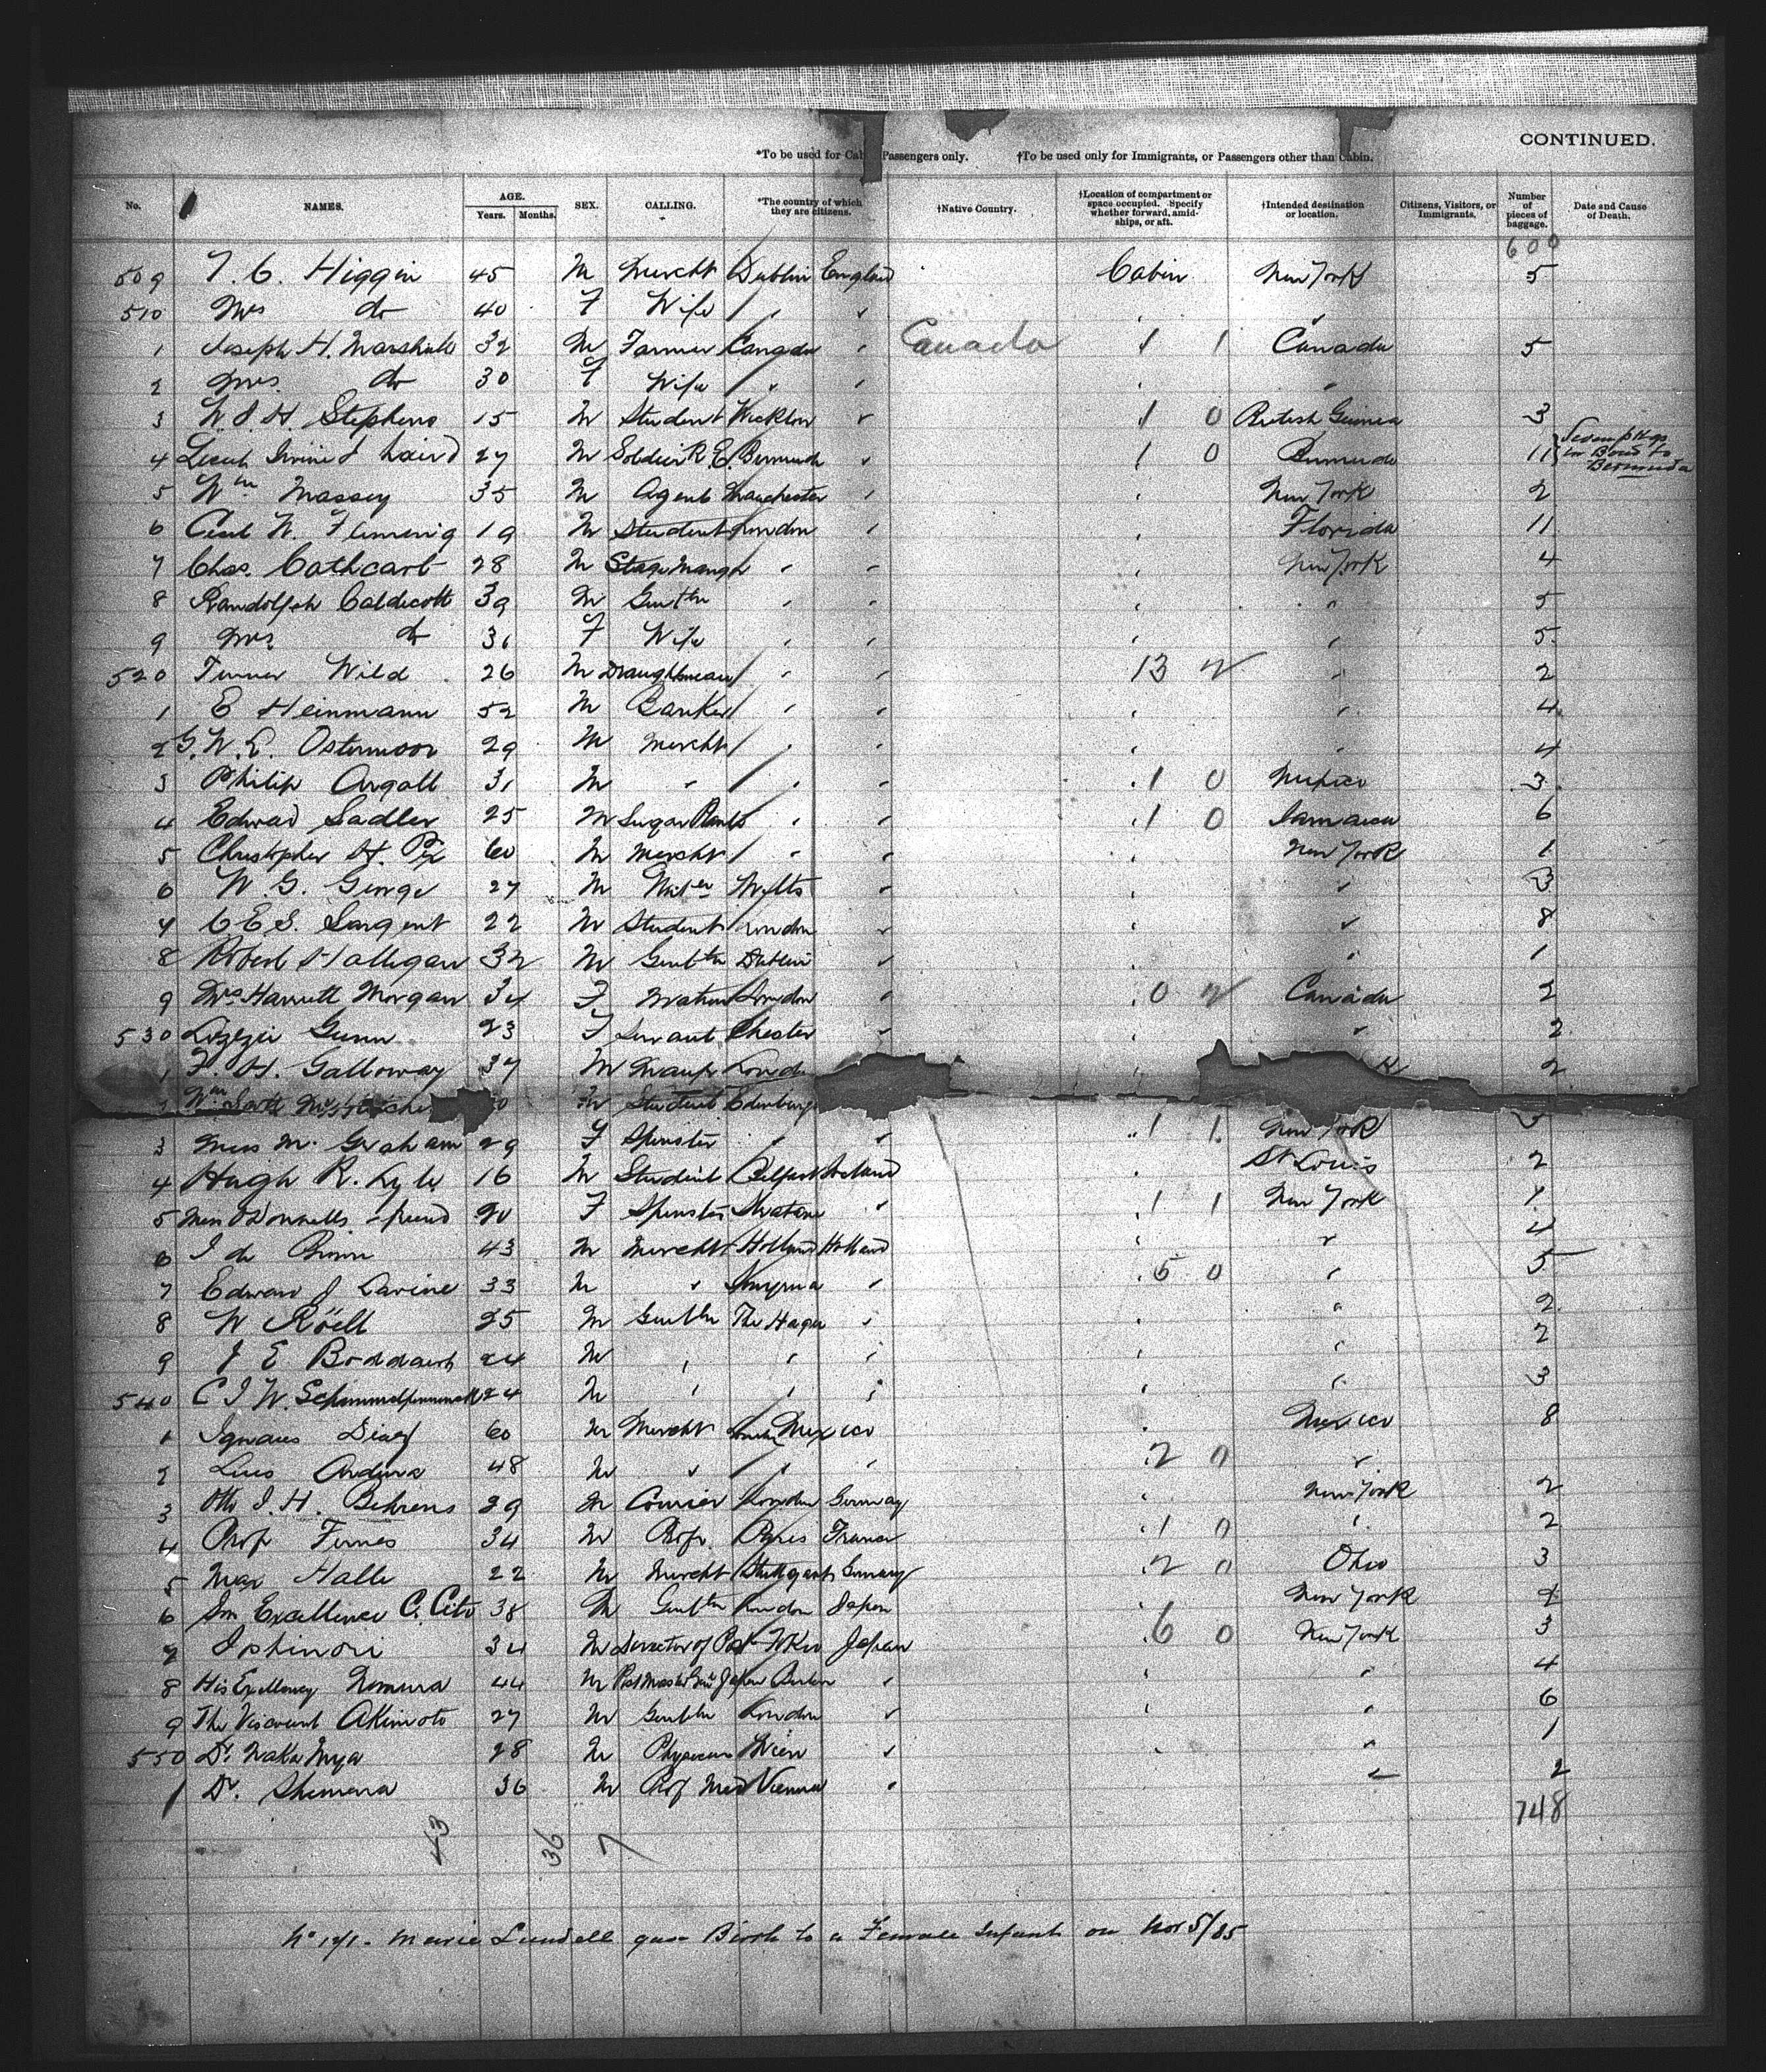 CONTINUED.
*To be used for Cabin Passengers only. †To be used only for Immigrants, or Passengers other than Cabin.
No. NAMES. AGE. Years. Months. SEX. CALLING. *The country of which they are citizens. †Native Country. †Location of compartment or space occupied. Specify whether forward, amidships, or aft. †Intended destination or location. Citizens, Visitors, or Immigrants. Number of pieces of baggage. Date and Cause of Death.
600
509 T. C. Higgin 45 M Mercht Dublin England Cabin New York 5
510 Mrs do 40 F Wife
1 Joseph H. Marshall 32 M Farmer Canada Canada 1 1 Canada 5
2 Mrs do 30 F Wife
3 W. J. H. Stephens 15 M Student 1 0 British Guinea 3
4 Laird 27 M Soldier R. E. Bermuda 1 0 Bermuda 11 Bermuda
5 Wm Massey 35 M Agent Manchester New York 2
6 Cecil W. Fleming 19 M Student London Florida 11
7 Chas. Cathcart 28 M Stage Mangr New York 4
8 Randolph Caldecott 39 M Gentln 5
9 Mrs do 36 F Wife 5
520 Turner Wild 26 M Draughtsman 13 2
1 E Heinmann 52 M Banker 4
2 G. W. L. Ostermoor 29 M Mercht 4
3 Philip Argall 31 M 1 0 Mexico 3
4 Edward Sadler 25 M Sugar Plantr 1 0 Jamaica 6
5 Christopher H. 60 M Mercht New York 1
6 W. G. George 27 M Wilts 3
7 C. E. S. Sargent 22 M Student London 8
8 Robert Halligan 32 M Gentln Dublin 1
9 Mrs Harriett Morgan 34 F Matron London 0 Canada 2
530 Gunn 23 F Servant Chester 2
1 F. H. Galloway 37 M 2
Wm Scott M Student Edinburgh
3 Miss M. Graham 29 F Spinster 1 1 New York
4 Hugh R. Lyle 16 M Student Belfast Ireland St Louis 2
5 F Spinster 1 1 New York 1
6 J de 43 M Mercht Holland Holland 4
7 Edward J Lavine 33 M Smyrna 5 0 5
8 W Röell 25 M Gentln The Hague 2
9 J E Boddaert 24 M 2
540 C J W. Schimmelpenninck 24 M 3
1 Diaz 60 M Mercht Mexico Mexico 8
2 Luis 48 M 2 0
3 Otto J. H. Behrens 29 M Courier London Germany New York 2
4 Prof Fernes 34 M Profr. Paris France 1 0 2
5 Max Halle 22 M Mercht Stuttgart Germany 2 0 Ohio 3
6 Son Excellence C. Cito 38 M Gentln London Japan New York
7 Ishinori 34 M Director of Post Tokio Japan 6 0 New York 3
8 His Excellency Nomura 44 M Post Master Genl Japan Berlin 4
9 The Viscount Akimoto 27 M Gentln London 6
550 Dr. Naka 28 M Physician Wien 1
1 Dr. 36 M Prof Med Vienna 2
748
43 36 7
No 171. Marie Lundell gave Birth to a Female Infant on Nov 5/85